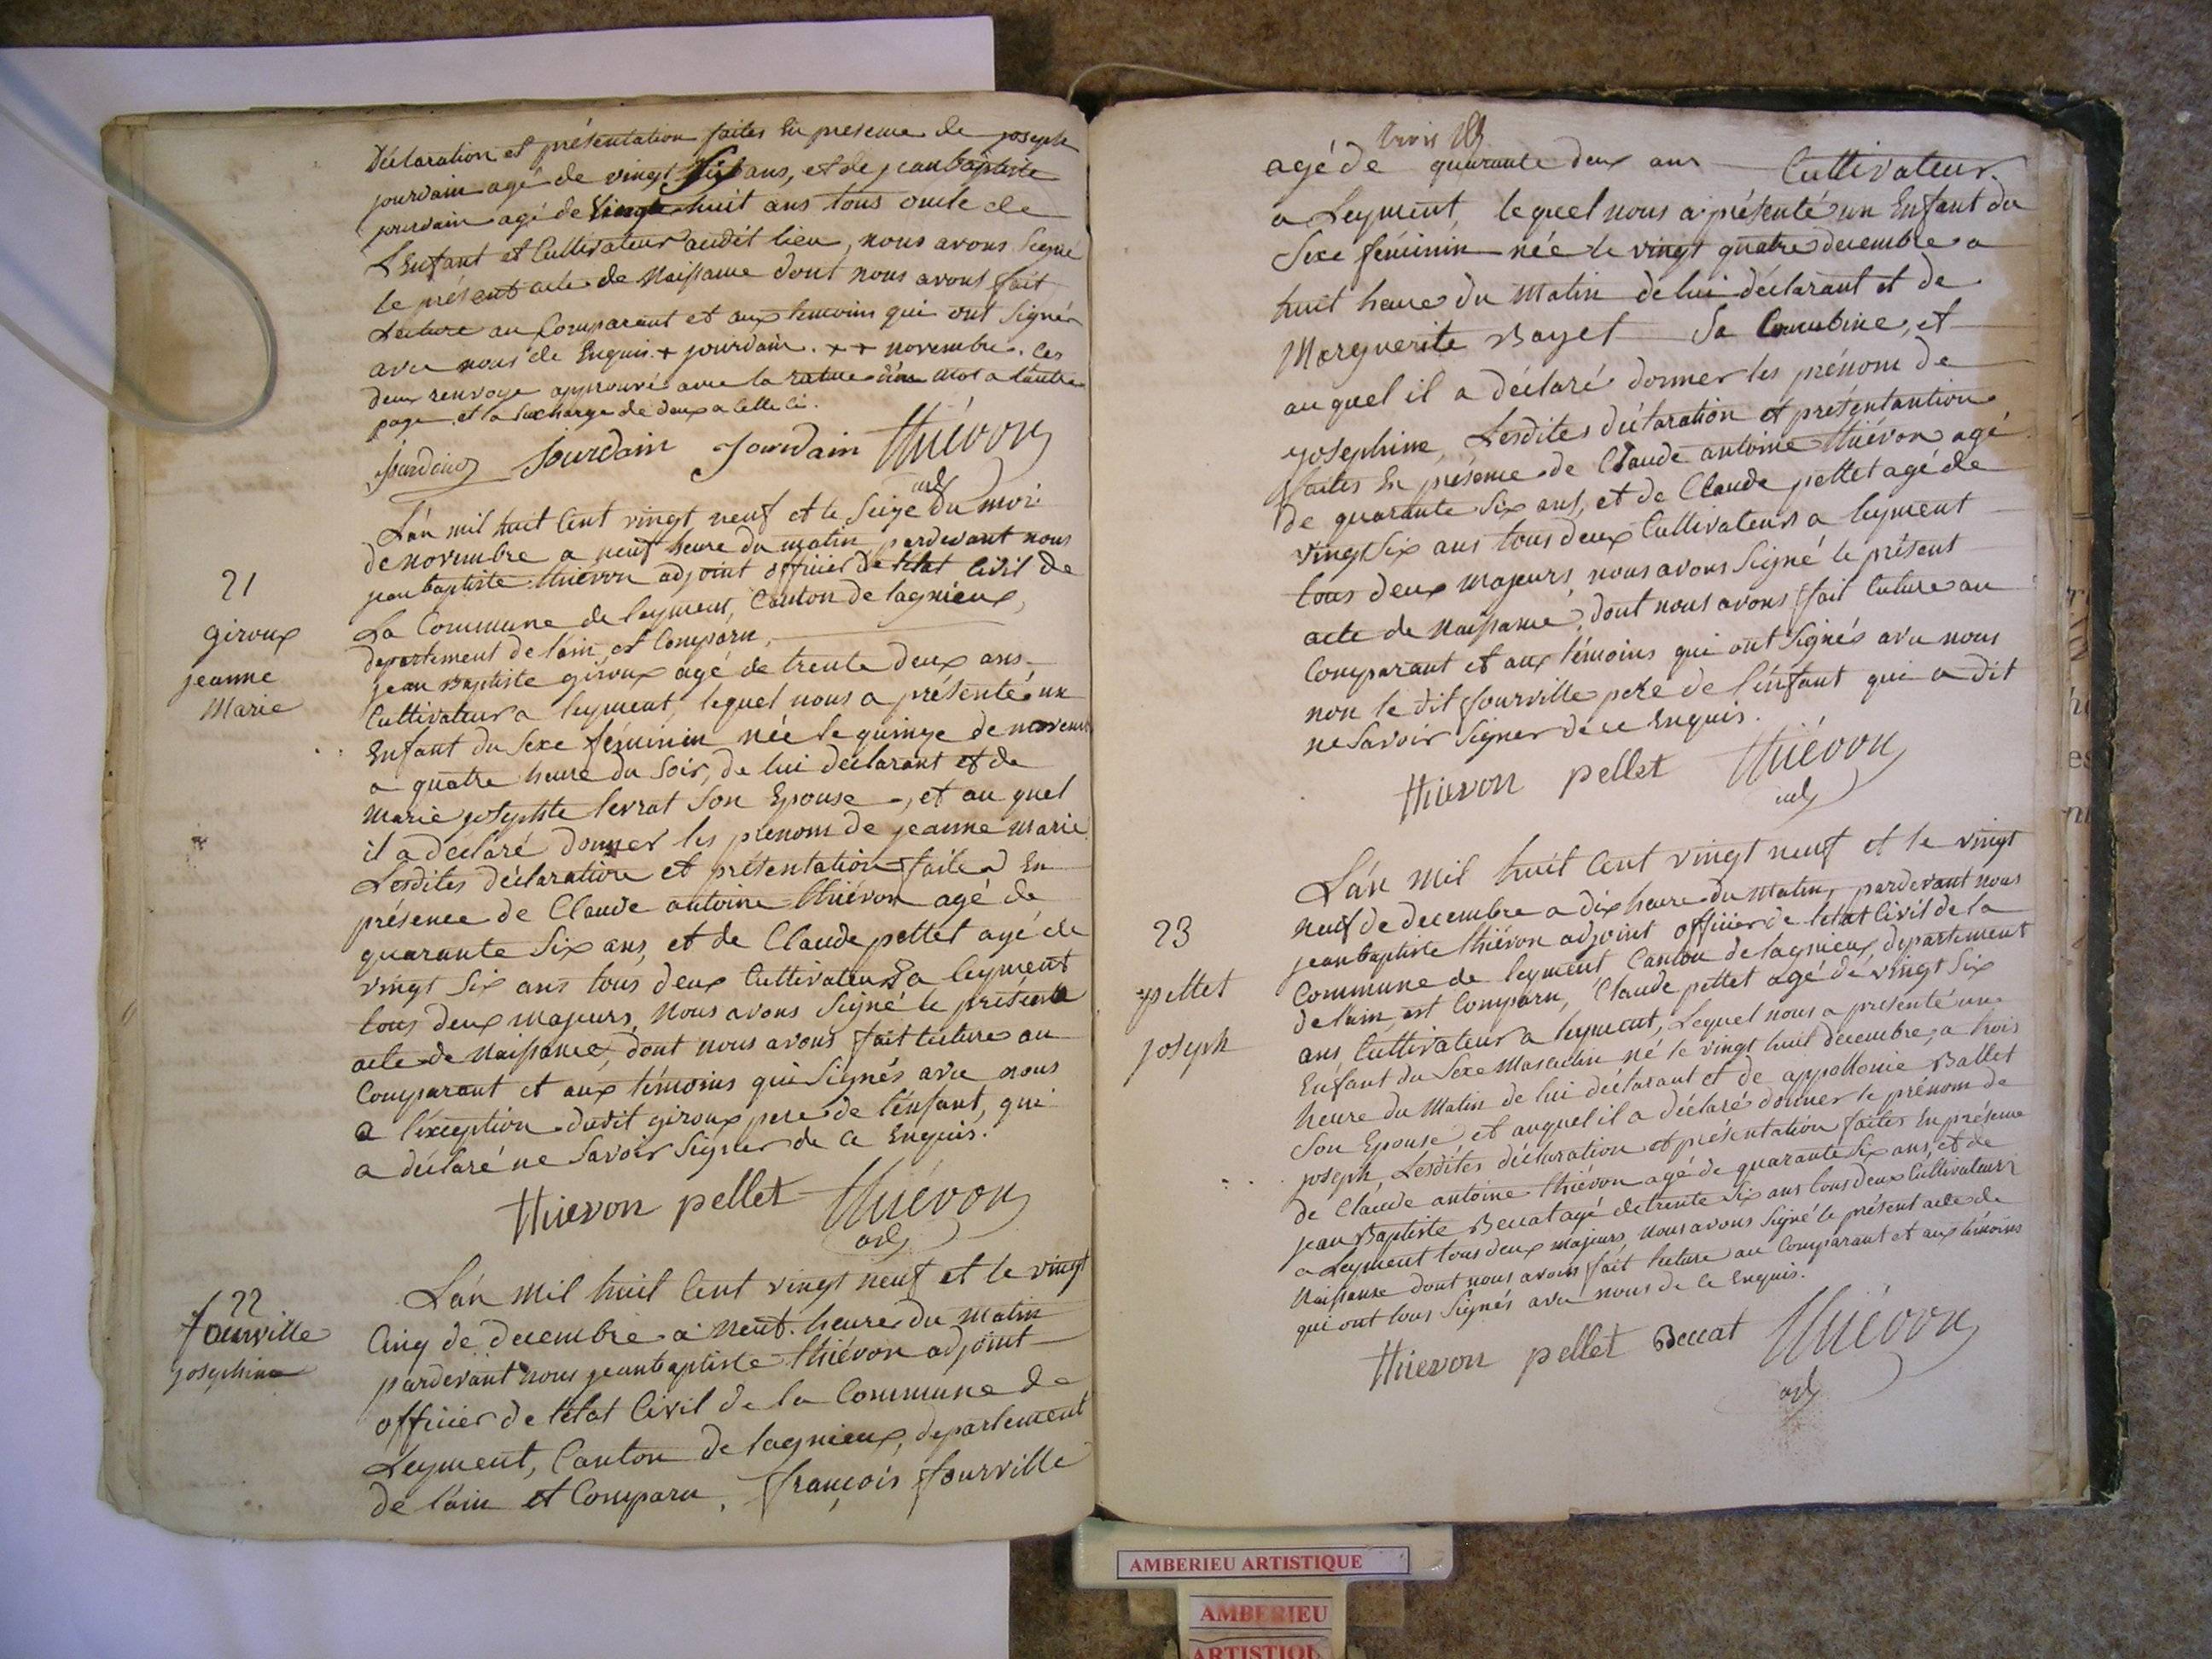 Déclaration et présentation faites En presence de joseph
jourdain agé de vingt Six ans, et de jean baptiste
jourdain agé de Vingt huit ans tous oncle de
L'Enfant et Cultivateur audit lieu, nous avons Signé
le présent acte de Naissance dont nous avons fait
Lecture au Comparant et aux temoins qui ont Signés
avec nous de Enquis + jourdain. ++ novembre. Ces
deux renvoye approuvé avec la rature d'un mot a l'autre
page et la Surcharge de deux a Celle Ci.
Jourdain Jourdain Jourdain thiévon
adj
L'an mil huit Cent vingt neuf et le Seize du moi
de novembre a neuf heure du matin pardevant nous
jean baptiste thiévon adjoint officier de l'état Civil de
21
giroux
jeanne
Marie
La Commune de leyment, Canton de lagnieux,
departement de lain, est Comparu,
jean Baptiste giroux agé de trente deux ans
Cultivateur a leyment, lequel nous a présenté un
Enfant du Sexe féminin née le quinze de novembre
a quatre heure du Soir, de lui déclarant et de
Marie josephte levrat Son Epouse, et au quel
il a déclaré donner les prenom de jeanne Marie
Lesdites déclaration et présentation faites En
présence de Claude antoine thiévon agé de
quarante Six ans, et de Claude pellet agé de
vingt Six ans tous deux Cultivateurs a leyment
tous deux majeurs, Nous avons Signé le présent
acte de Naissance, dont nous avons fait lecture au
Comparant et aux témoins qui Signés avec nous
a l'éxception dudit giroux pere de l'énfant, qui
a déclaré ne Savoir Signer de Ce Enquis.
thievon pellet thiévon
adj
22
fourville
josephine
L'an mil huit Cent vingt neuf et le vingt
Cinq de decembre a neuf heure du Matin
pardevant nous jean baptiste thiévon adjoint
officier de l'état Civil de la Commune de
Leyment, Canton de lagnieux, departement
de l'ain et Comparu, françois fourville
trois
agé de quarante deux ans Cultivateur
a Leyment, lequel nous a présenté un Enfant du
Sexe féminin née le vingt quatre decembre a
huit heure du Matin de lui déclarant et de
Marguerite Bayet Sa Concubine, et
auquel il a déclaré donner les prénom de
josephine, Lesdites déclaration et présentantion
faites En présence de Claude antoine thiévon agé
de quarante Six ans, et de Claude pellet agé de
vingt Six ans tous deux Cultivateurs a leyment
tous deux majeurs, nous avons Signé le présent
acte de Naissance, dont nous avons fait lecture au
Comparant et aux témoins qui ont Signés avec nous
non le dit fourville pere de l'énfant qui a dit
ne Savoir Signer de ce Enquis.
thievon pellet thiévon
adj
23
pellet
joseph
L'an mil huit Cent vingt neuf et le vingt
neuf de decembre a dix heure du Matin, pardevant nous
jean baptiste thiévon adjoint officier de l'état Civil de la
Commune de leyment Canton de lagnieux departement
de lain, est Comparu, Claude pellet agé de vingt Six
ans, Cultivateur a leyment, Lequel nous a présenté un
Enfant du Sexe Masculin né le vingt huit decembre, a trois
heure du Matin de lui déclarant et de appollonie Ballet
Son Epouse, et auquel il a déclaré donner le prénom de
joseph, Lesdites déclaration et présentation faites En présence
de Claude antoine thiévon agé de quarante Six ans, et de
jean Baptiste Beccat agé de trente Six ans tous deux Cultivateurs
a Leyment tous deux majeurs, Nous avons Signé le présent acte de
Naissance dont nous avons fait lecture au Comparant et aux témoins
qui ont tous Signés avec nous de Ce Enquis.
thievon pellet Beccat thiévon
adj
AMBERIEU ARTISTIQUE
AMBERIEU
ARTISTIQU